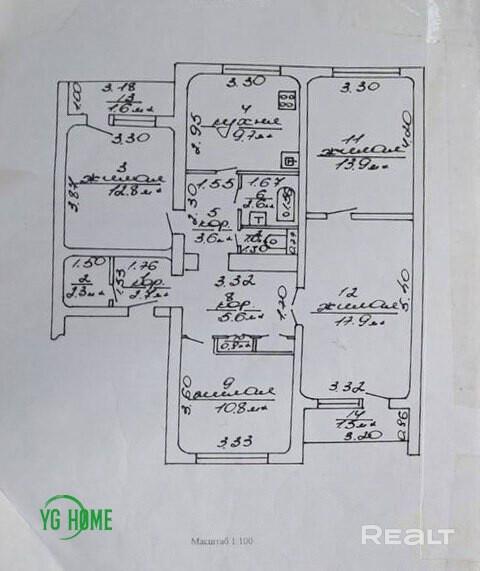 3.30
3.30
3.18
1.00
13
1.6 м²
4
кухня
9.7 м²
2.95
11
жилая
13.9 м²
4.20
3.30
3
жилая
12.8 м²
3.87
1.55
1.67
2.30
5
кор.
3.6 м²
6
2.6 м²
1.30
1.50
1.76
2
2.3 м²
1.53
1
кор.
2.7 м²
3.32
8
кор.
5.6 м²
1.70
12
жилая
17.9 м²
5.40
3.60
9
жилая
10.8 м²
3.33
3.32
14
1.3 м²
3.20
0.86
YG HOME
Масштаб 1:100
REALT